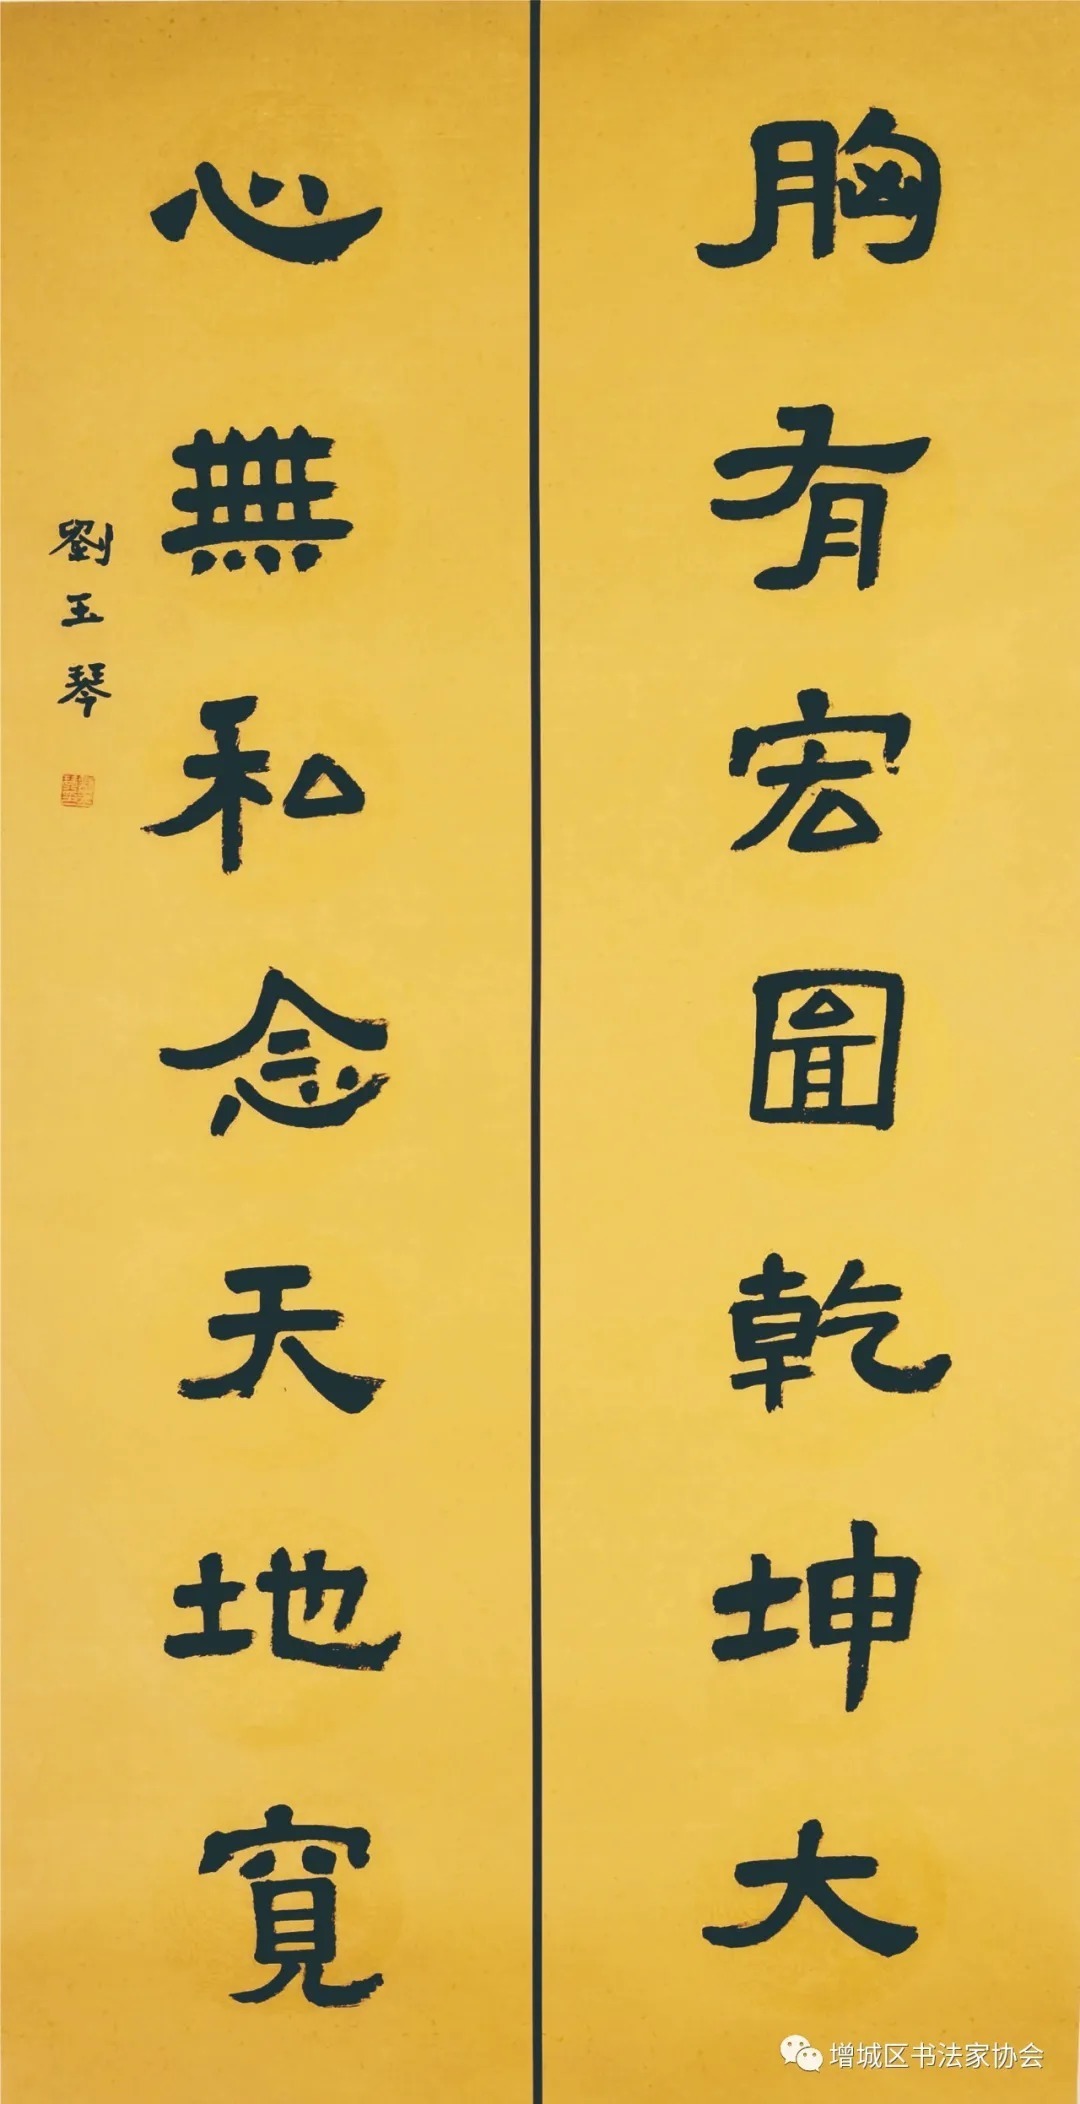 胸有宏圖乾坤大
心無私念天地寬
劉玉琴
增城区书法家协会